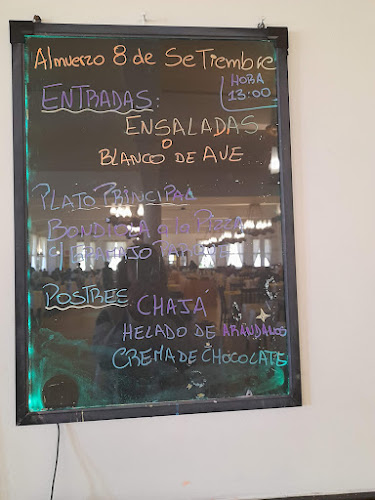 Almuerzo 8 de SeTiembre
HORA
13:00
ENTRADAS:
ENSALADAS
o
BLANCO DE AVE
PLATO PRINCIPAL
BONDIOLA a la
POSTRES
CHAJÁ
HELADO DE ARÁNDANOS
CREMA DE CHOCOLATE